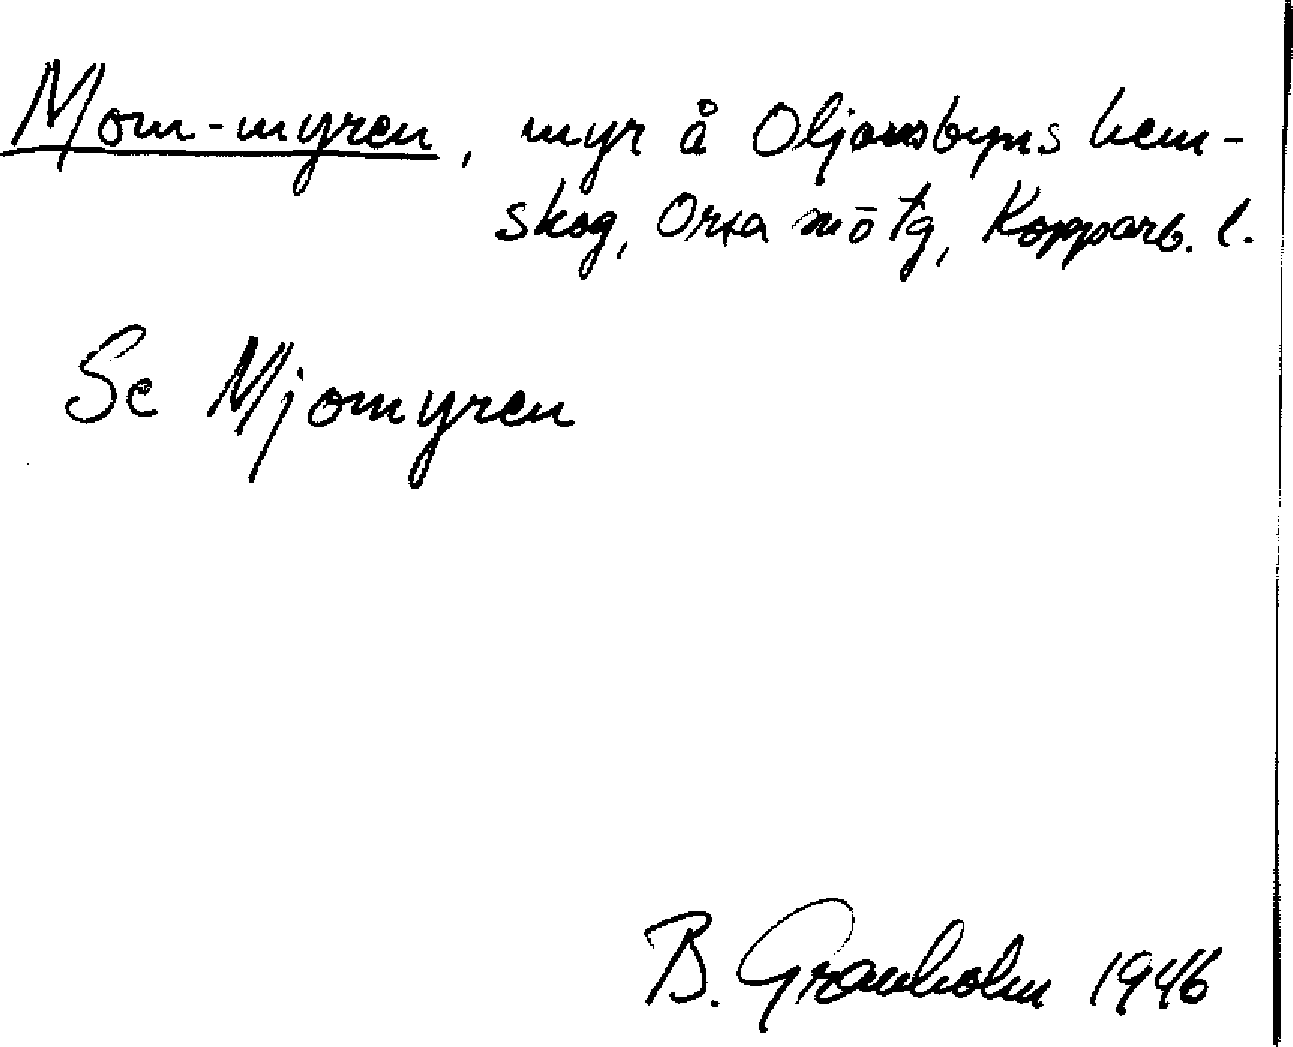 Mom-myren, myr å Oljonsbyns hem-
skog, Orsa sn ö tg, Kopparb. l.
Se Mjomyren
B. Granholm 1946